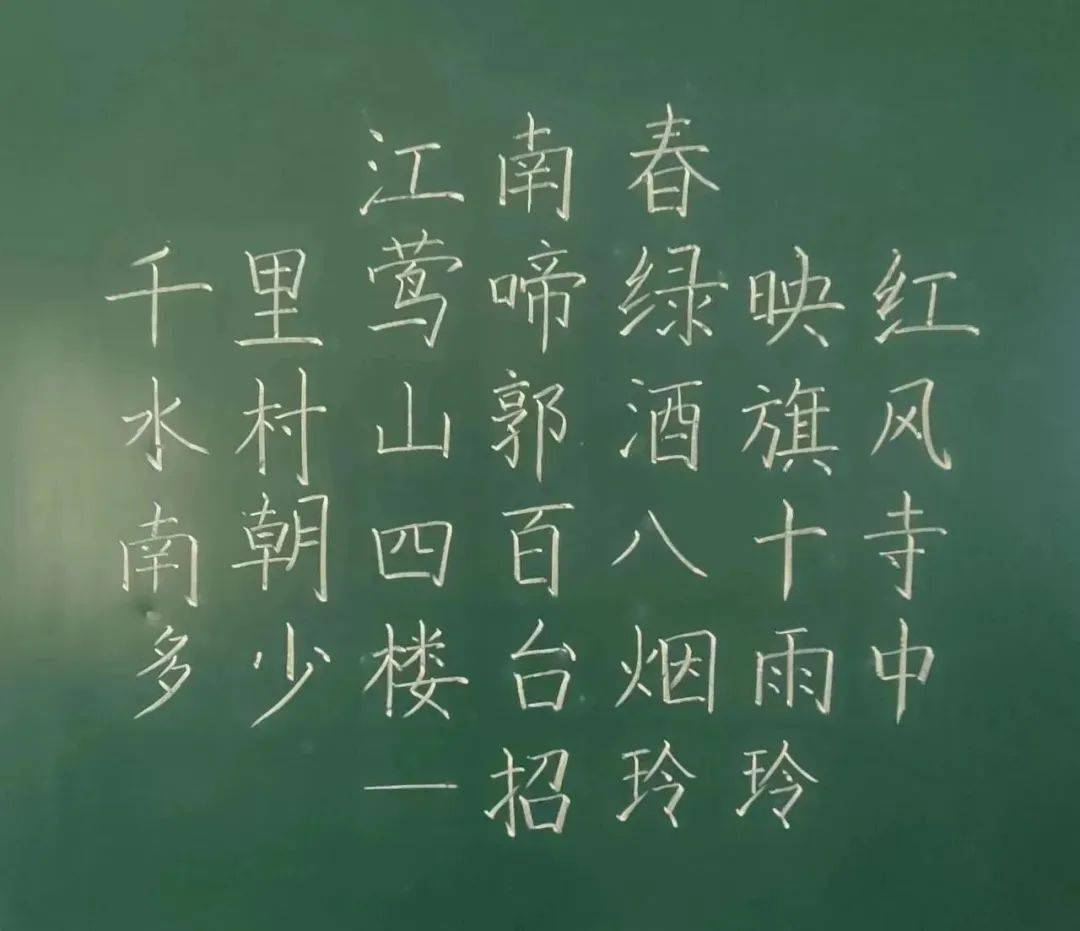 江南春
千里莺啼绿映红
水村山郭酒旗风
南朝四百八十寺
多少楼台烟雨中
—招玲玲